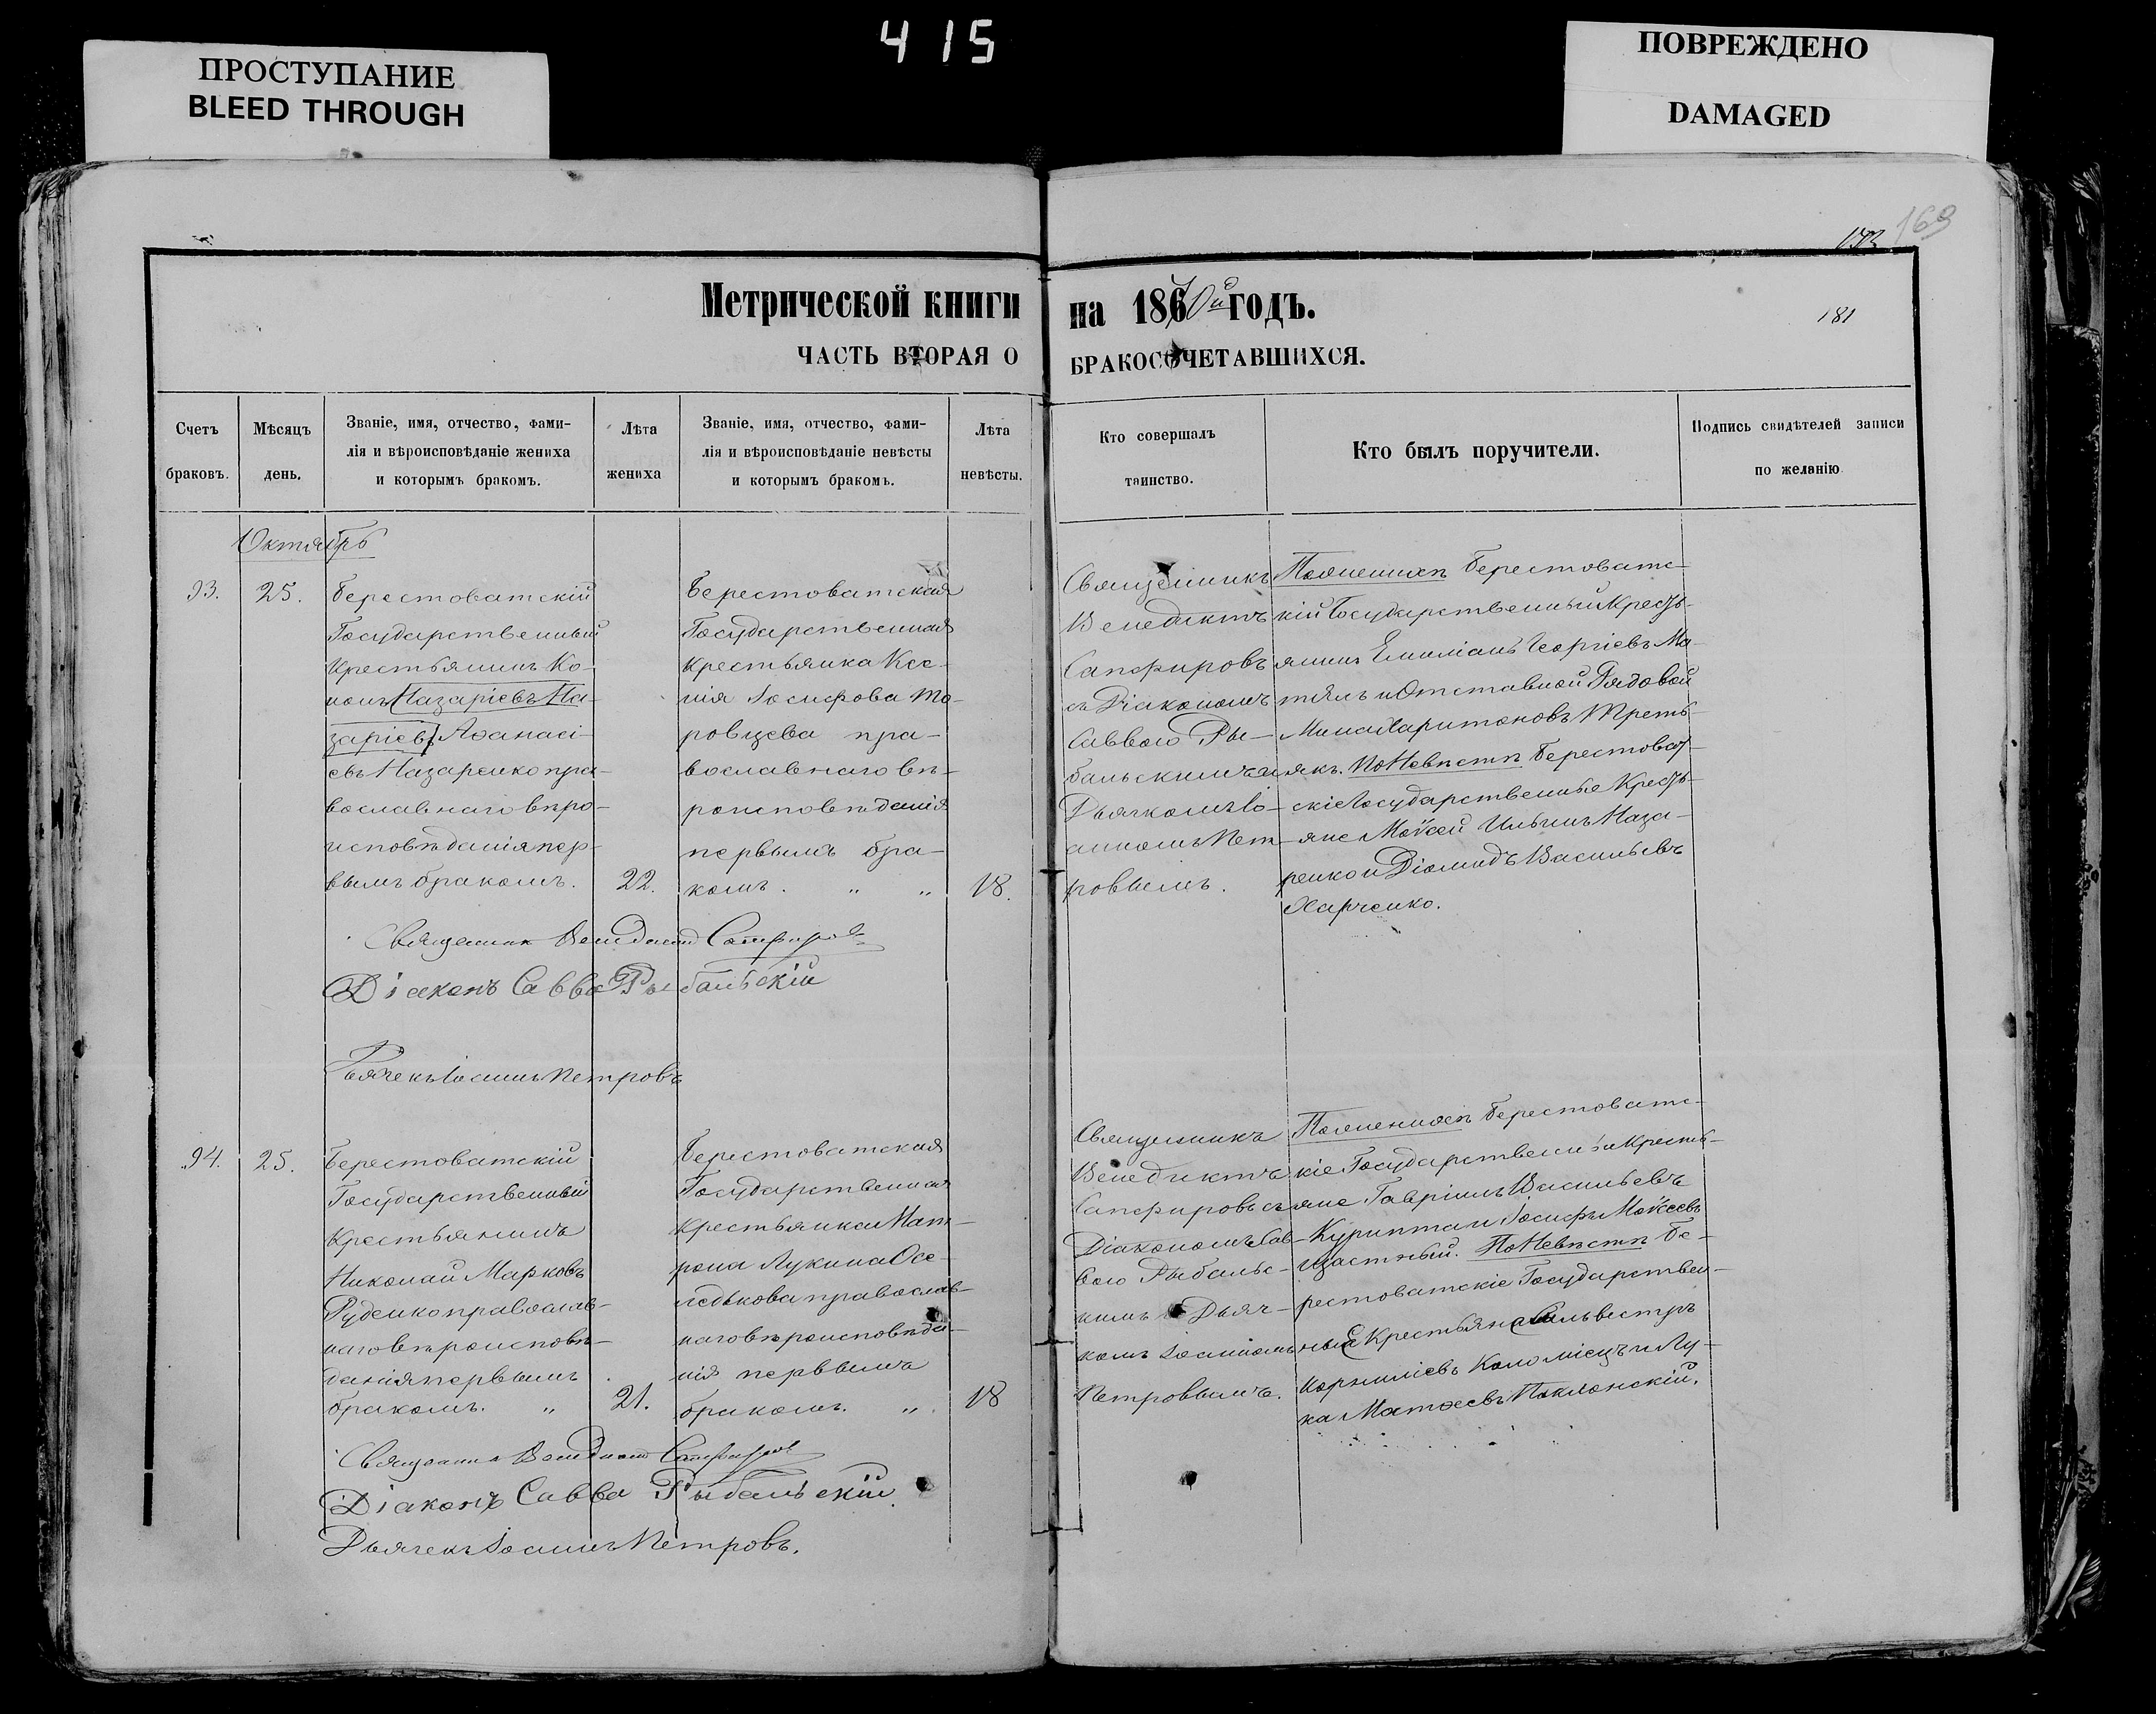 415
ПРОСТУПАНИЕ
BLEED THROUGH
ПОВРЕЖДЕНО
DAMAGED
169
181
Метрической книги на 1870й годъ.
ЧАСТЬ ВТОРАЯ О БРАКОСОЧЕТАВШИХСЯ.
Счетъ
браковъ.
Мѣсяцъ
день.
Званіе, имя, отчество, фами-
лія и вѣроисповѣданіе жениха
и которымъ бракомъ.
Лѣта
жениха
Званіе, имя, отчество, фами-
лія и вѣроисповѣданіе невѣсты
и которымъ бракомъ.
Лѣта
невѣсты.
Кто совершалъ
таинство.
Кто былъ поручители.
Подпись свидѣтелей записи
по желанію
Октябрь
93.
25.
Берестоватскій
Государственный
Крестьянинъ Ко-
нонъ Назаріевъ На-
заріевъ Аѳанасі-
евъ Назаренко пра-
вославнаго вѣро-
исповѣданія пер-
вымъ бракомъ.
22.
Берестоватская
Государственная
Крестьянка Ксе-
нія Іосифова То-
ровцева пра-
вославнаго вѣ-
роисповѣданія
первымъ бра-
комъ. " "
18.
Священникъ
Венедиктъ
Сапфировъ
съ Діакономъ
Саввою Ры-
бальскимъ и
Дьячкомъ Іо-
анномъ Пет-
ровымъ.
По женихѣ Берестоватс-
кій Государственный Кресть-
янинъ Емиліанъ Георгіевъ Ма-
тялъ и Отставной Рядовой
Мина Харитоновъ Треть-
якъ. По Невѣстѣ Берестоват-
скіе Государственные Кресть-
яне Моѵсей Ильинъ Наза-
ренко и Діомидъ Васильевъ
Харченко.
Священник Венедикт Сапфиров
Діаконъ Савва Рыбальскій
Дьячекъ Іоаннъ Петровъ
94.
25.
Берестоватскій
Государственный
Крестьянинъ
Николай Марковъ
Руденко православ-
наго вѣроисповѣ-
данія первымъ
бракомъ. "
21.
Берестоватская
Государственная
Крестьянка Мат-
рона Лукина Осе-
ледькова православ-
наго вѣроисповѣда-
нія первымъ
бракомъ. "
18
Священникъ
Венедиктъ
Сапфировъ съ
Діакономъ Сав-
вою Рыбальс-
кимъ и Дьяч-
комъ Іоанномъ
Петровымъ.
По женихѣ Берестоватс-
кіе Государственные Кресть-
яне Гавріилъ Васильевъ
Курипта и Іосифъ Моѵсеевъ
Щастный. По Невѣстѣ Бе-
рестоватскіе Государствен-
ные Крестьяне Сильвестръ
Корниліевъ Коломіецъ и Лу-
ка Матѳеевъ Поклонскій.
Священник Венедикт Сапфиров
Діаконъ Савва Рыбальскій.
Дьячекъ Іоаннъ Петровъ.